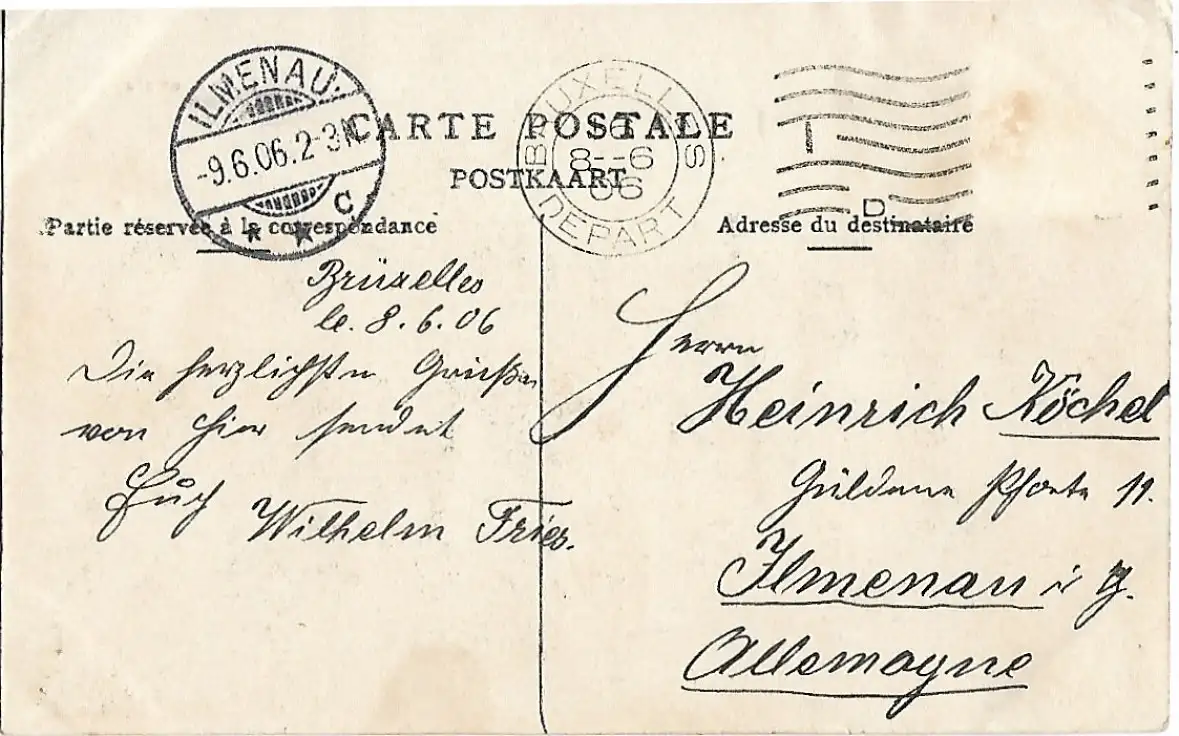 ILMENAU.
-9.6.06.2-3N.
C
* *
BRUXELLES
6
8--6
06
DEPART
D
CARTE POSTALE
POSTKAART
Partie réservée à la correspondance
Adresse du destinataire
Brüxelles
le. 8.6.06
Die herzlichsten Grüße
von hier sendet
Euch Wilhelm Fries.
Herrn
Heinrich Köchel
Güldene Pforte 11.
Ilmenau i Th.
Allemagne